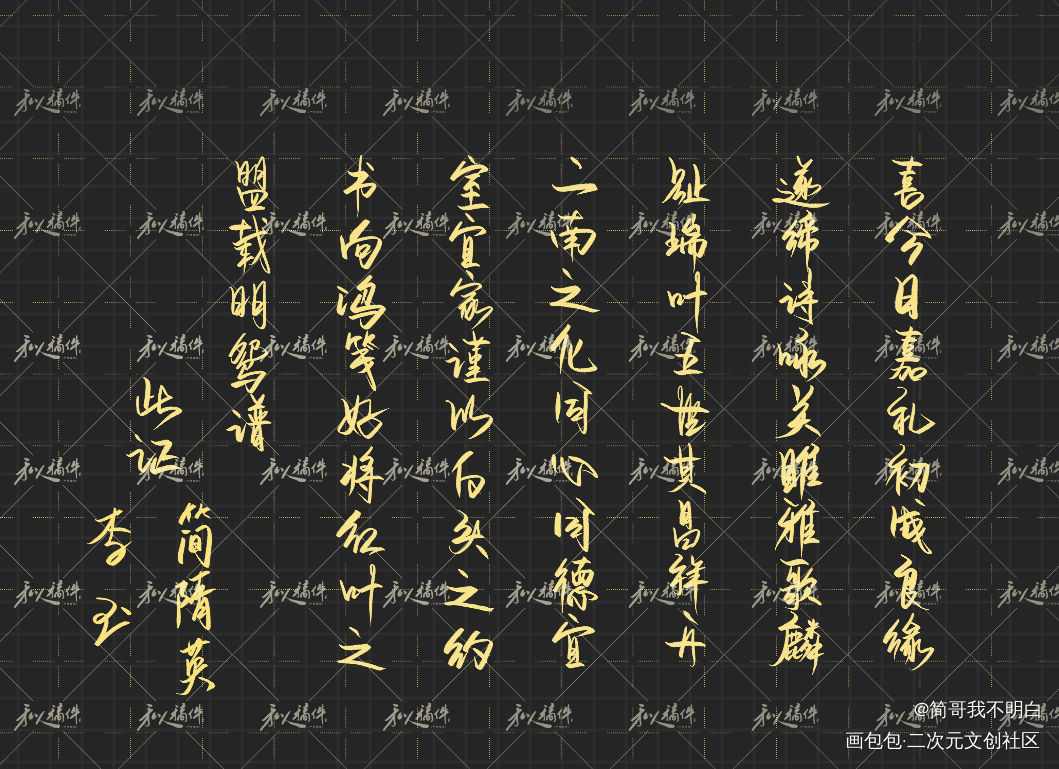 喜今日嘉礼初成良缘
遂缔诗咏关雎雅歌麟
趾瑞叶五世其昌祥开
二南之化同心同德宜
室宜家谨以白头之约
书向鸿笺好将红叶之
盟载明鸳谱
此证
简隋英
李玉
@简哥我不明白
画包包·二次元文创社区